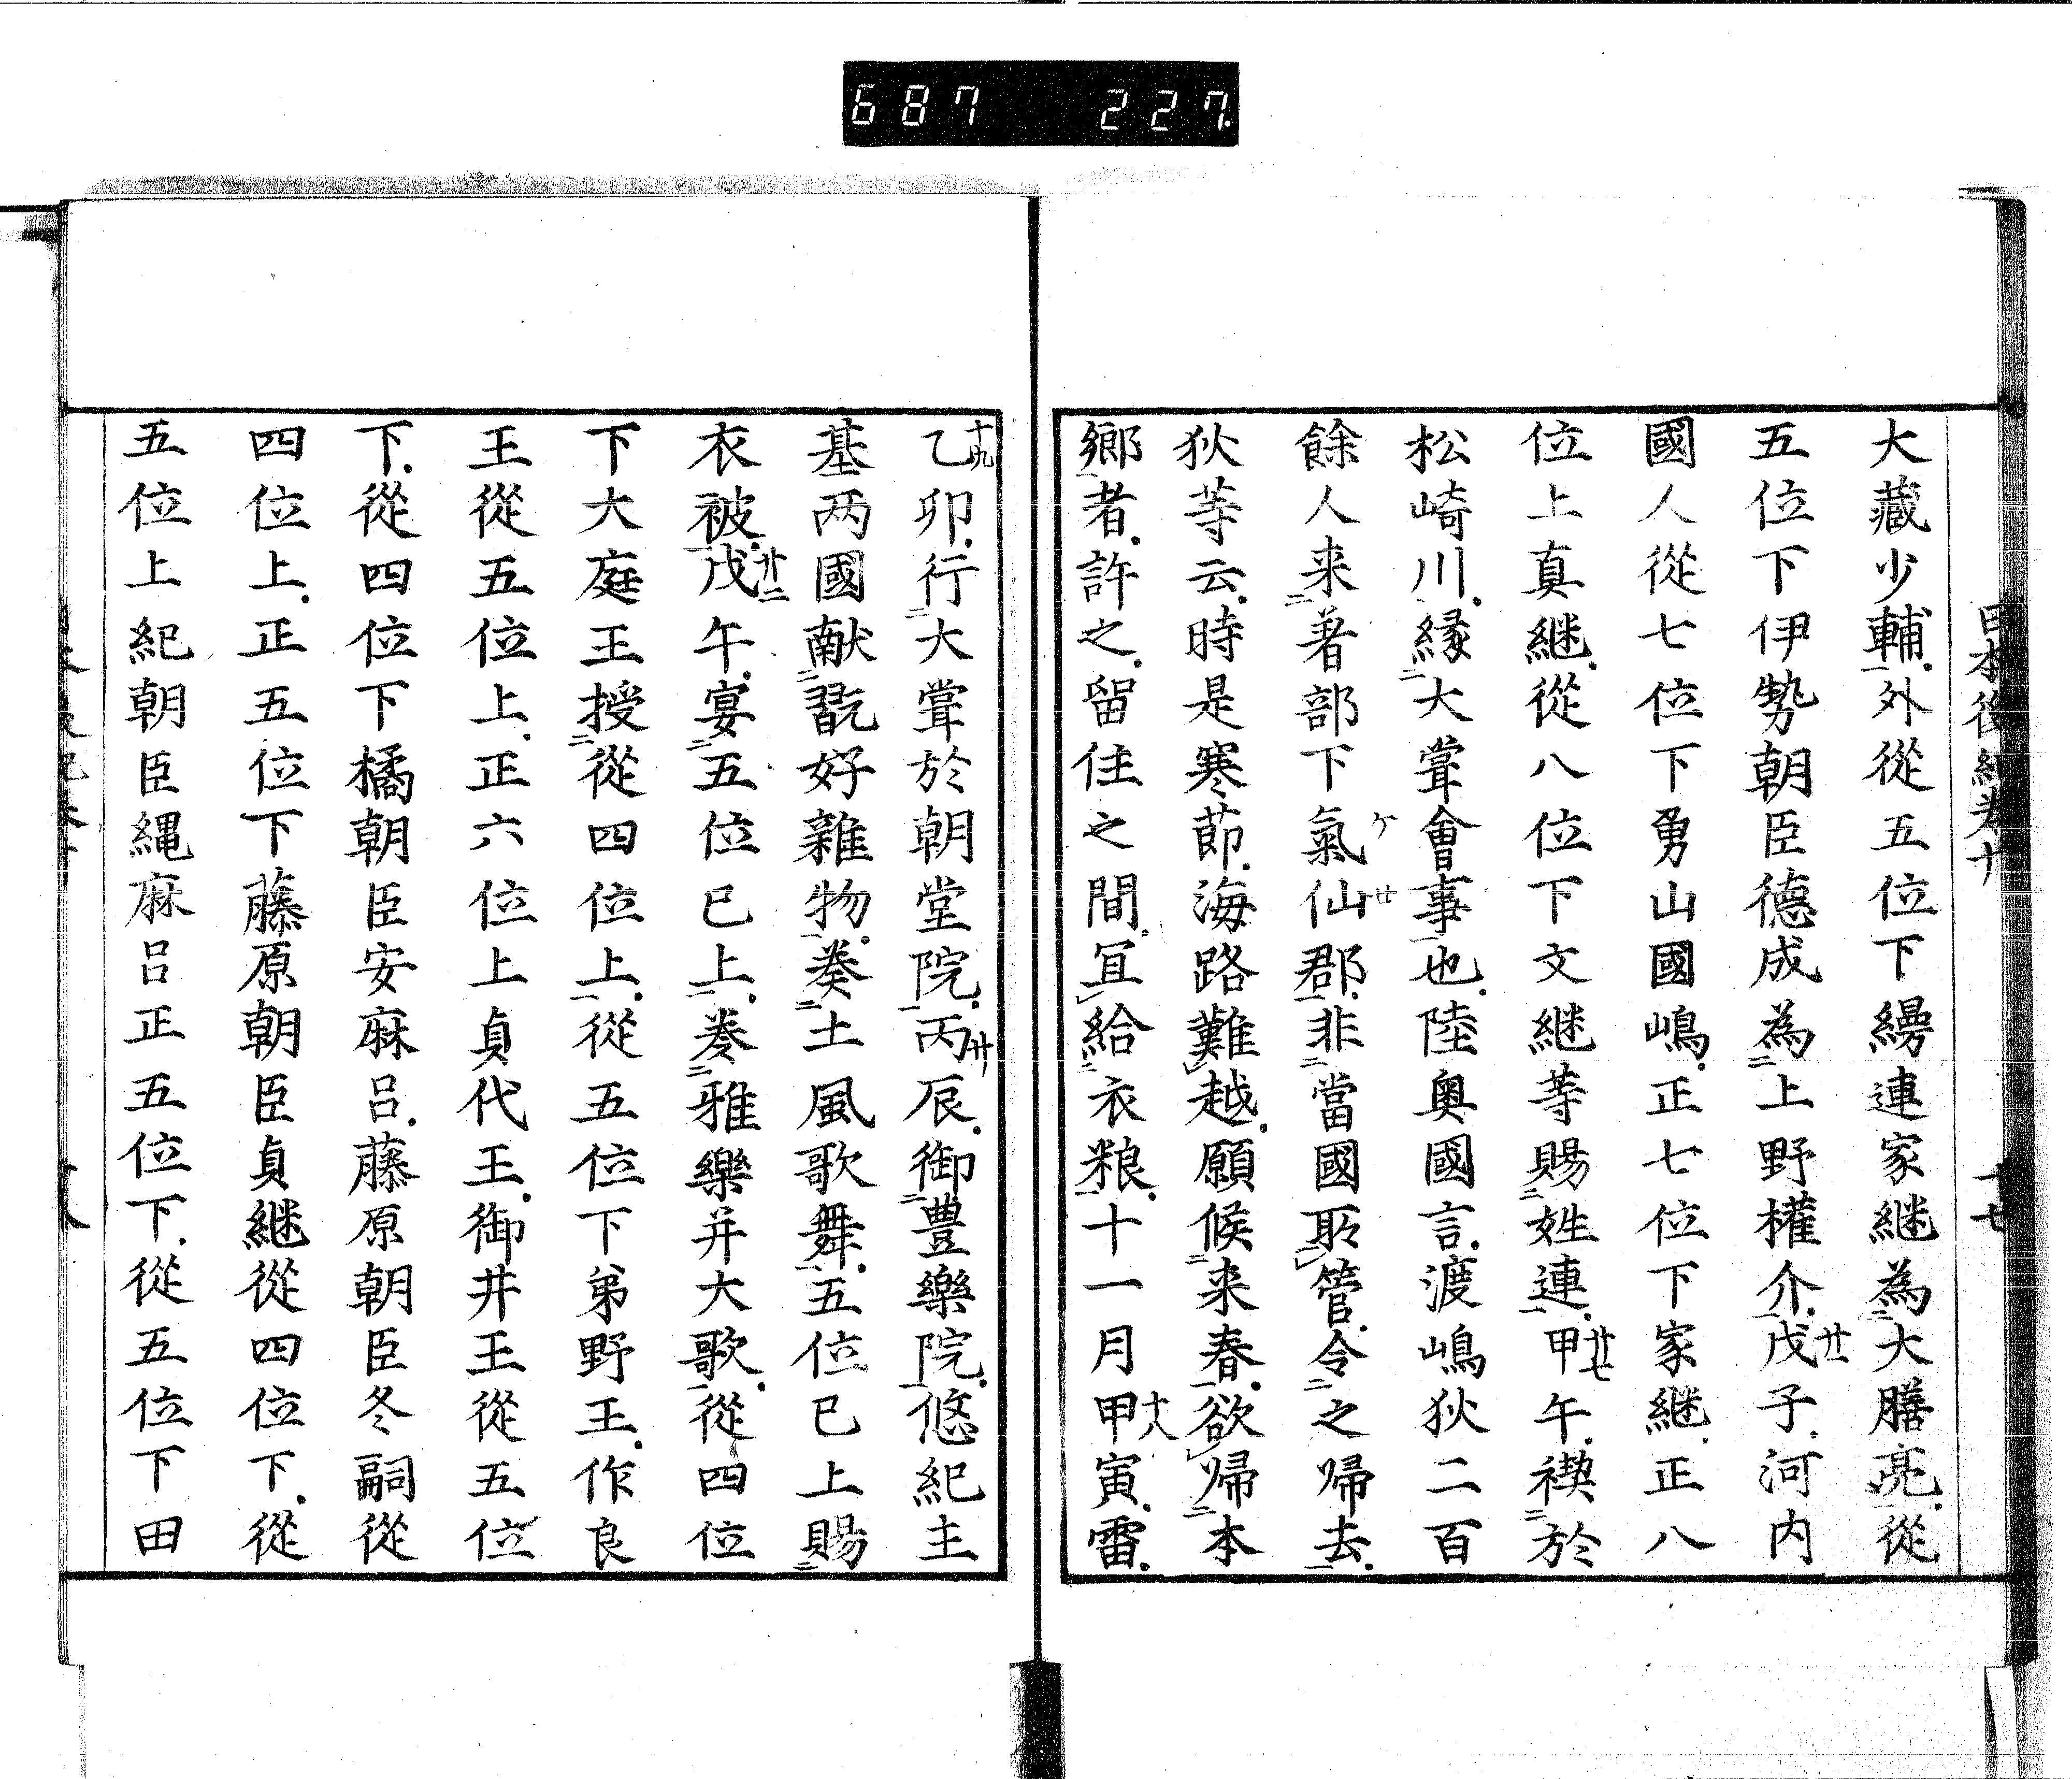 687 227.
日本後紀卷十 十七
大藏少輔外從五位下縵連家継為大膳亮從
五位下伊勢朝臣德成為上野權介戊子河内
國人從七位下勇山國嶋正七位下家継正八
位上真継從八位下文継等賜姓連甲午禊於
松崎川緣大甞會事也陸奥國言渡嶋狄二百
餘人来著部下氣仙郡非當國所管令之歸去
狄等云時是寒節海路難越願候来春欲歸本
鄉者許之留住之間冝給衣粮十一月甲寅雷
乙卯行大甞於朝堂院丙辰御豊樂院悠紀主
基两國献翫好雜物奏土風歌舞五位已上賜
衣被戊午宴五位已上奏雅樂并大歌從四位
下大庭王授從四位上從五位下弟野王作良
王從五位上正六位上貞代王御井王從五位
下從四位下橘朝臣安麻呂藤原朝臣冬嗣從
四位上正五位下藤原朝臣貞継從四位下從
五位上紀朝臣縄麻呂正五位下從五位下田